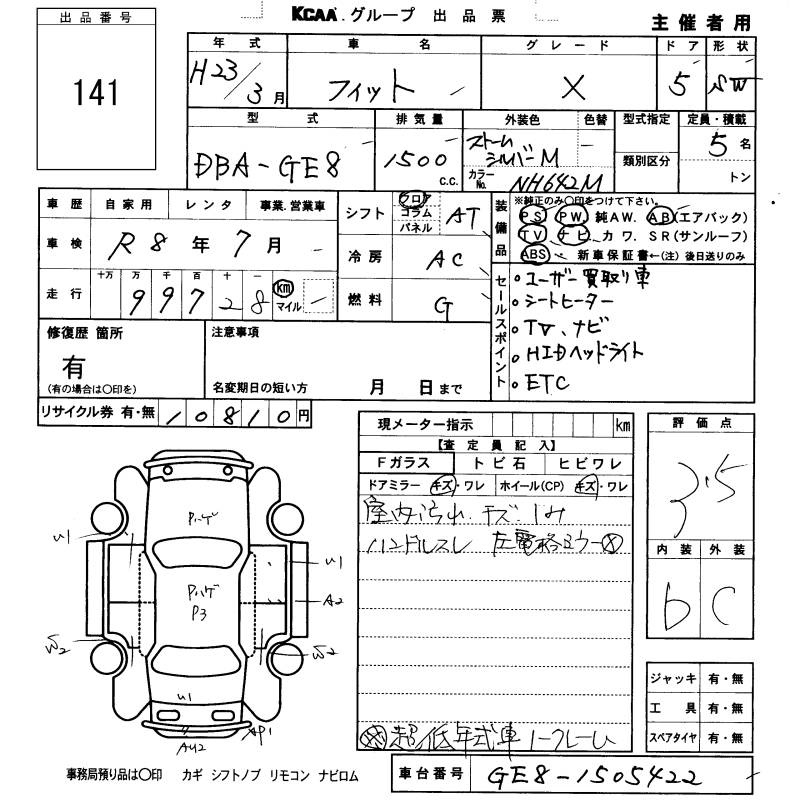 出品番号
141
KCAA グループ 出品票
主催者用
年式 車名 グレード ドア 形状
H23/3月 フィット X 5 SW
型式 排気量 外装色 色替 型式指定 定員・積載
DBA-GE8 1500 c.c. ストームシルバーM 類別区分 5名
カラーNo. NH642M トン
車歴 自家用 レンタ 事業.営業車
車検 R8年7月
走行 十万 万 千 百 十
99728 km マイル
シフト フロア コラム パネル AT
冷房 AC
燃料 G
装備品
※純正のみ〇印をつけて下さい。
PS PW 純AW. AB(エアバック)
TV ナビ カワ. SR(サンルーフ)
ABS 新車保証書←(注)後日送りのみ
セールスポイント
・ユーザー買取り車
・シートヒーター
・TV、ナビ
・HIDヘッドライト
・ETC
修復歴 箇所
有
(有の場合は〇印を)
注意事項
名変期日の短い方 月 日まで
リサイクル券 有・無 10810円
現メーター指示 km
【査定員記入】
Fガラス トビ石 ヒビワレ
ドアミラー キズ・ワレ ホイール(CP) キズ・ワレ
室内汚れ キズ
ハンドルスレ 左電格ミラー
超低年式車
評価点
3.5
内装 外装
b C
ジャッキ 有・無
工具 有・無
スペアタイヤ 有・無
Pハゲ
U1
U1
Pハゲ
P3
A2
W2
W2
U1
AU2
AP1
事務局預り品は〇印 カギ シフトノブ リモコン ナビロム
車台番号 GE8-1505422